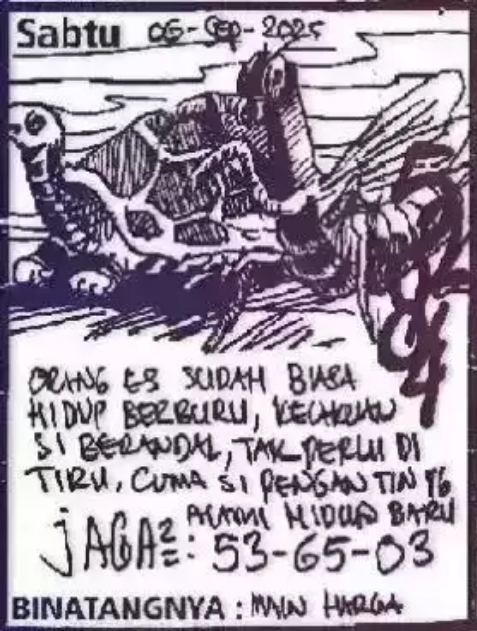 Sabtu 06-Sep-2025
ORANG ES SUDAH BIASA
HIDUP BERBURU, KELAKUAN
SI BERANDAL, TAK PERLU DI
TIRU, CUMA SI PENGANTIN YG
ALAMI HIDUP BARU
JAGA²: 53-65-03
BINATANGNYA : MAIN HARGA